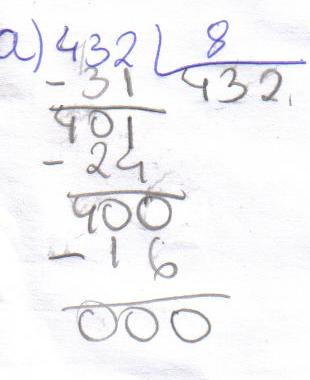 a) 432 8
- 31 432
401
- 24
400
- 16
000